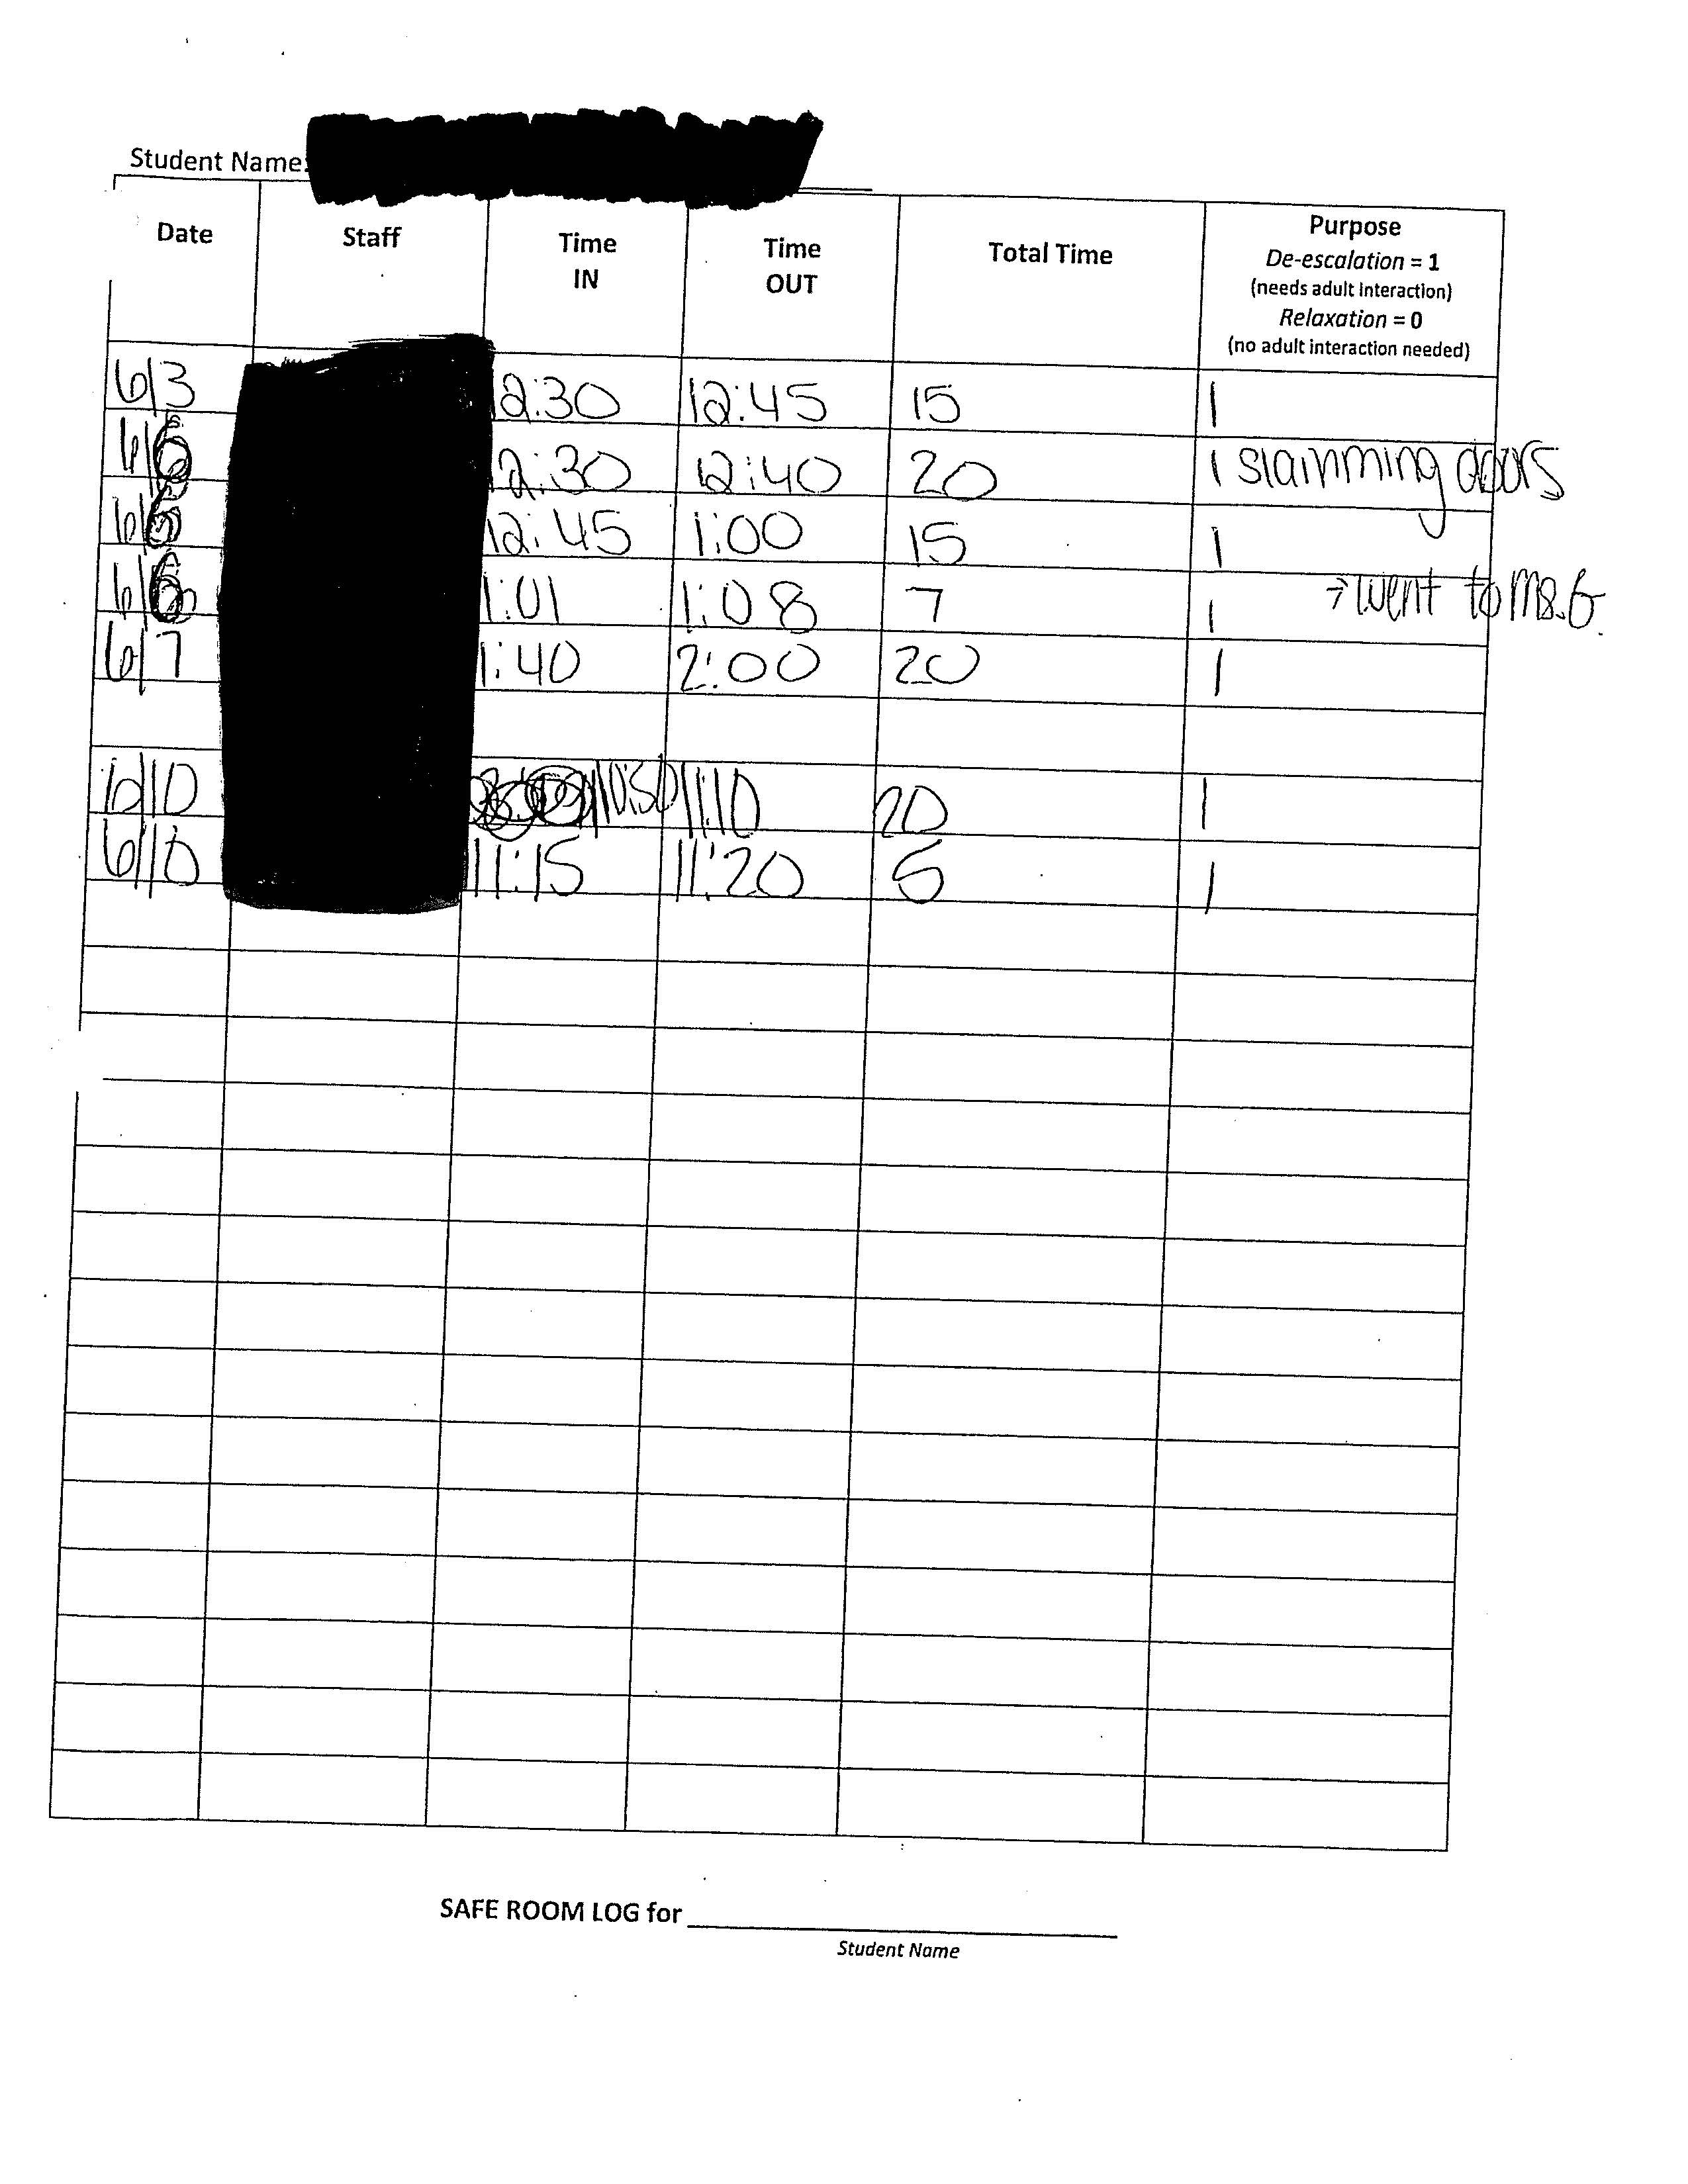 Student Name:
Date Staff Time IN Time OUT Total Time Purpose
De-escalation = 1
(needs adult interaction)
Relaxation = 0
(no adult interaction needed)
6/3 12:30 12:45 15 1
6/6 12:30 12:40 20 1 slamming doors
6/6 12:45 1:00 15 1
6/6 1:01 1:08 7 1 → went to Ms. G.
6/7 1:40 2:00 20 1
6/10 10:50 11:10 20 1
6/10 11:15 11:20 5 1
SAFE ROOM LOG for
Student Name